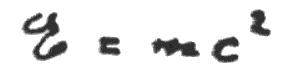 ℰ = mc²